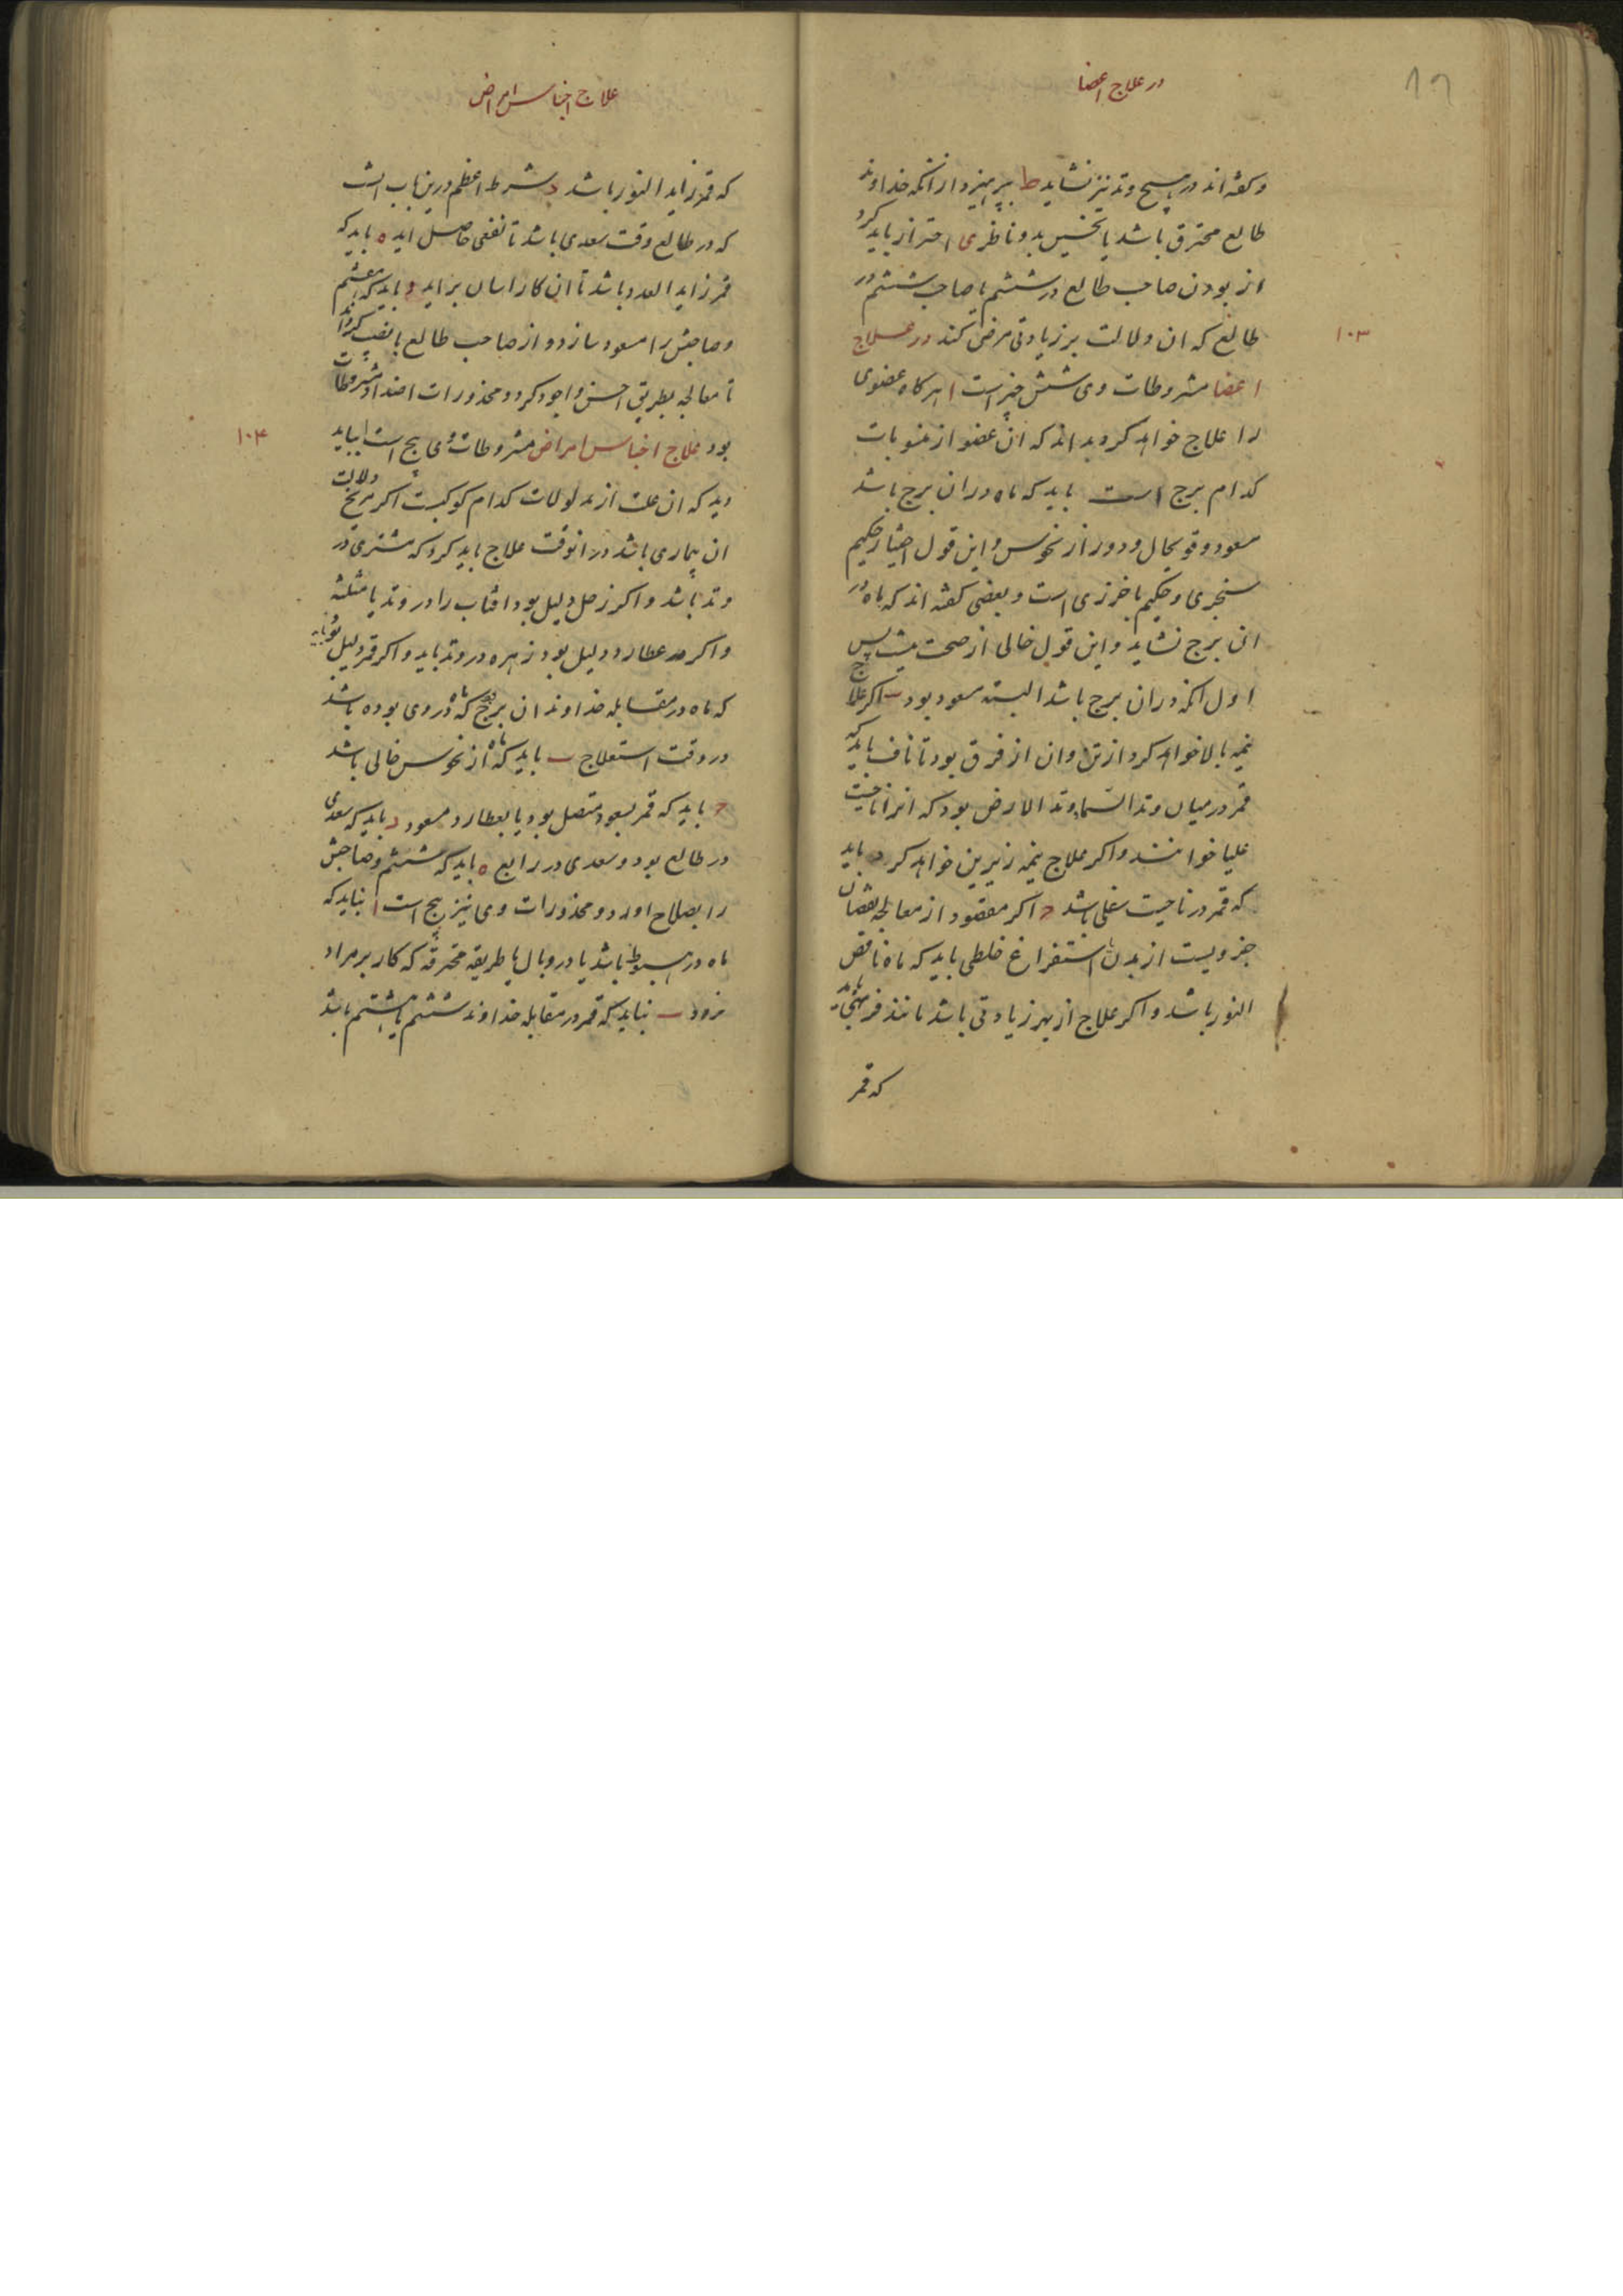 در علاج اعضا
و گفته اند در هیچ وتد نیز نشاید ط بپرهیزد از آنکه خداوند
طالع محترق باشد یا بنحسین بد و ناظر ی احتراز باید کرد
از بودن صاحب طالع در ششم یا صاحب ششم در
طالع که ان دلالت بر زیادتی مرض کند در علاج
۱۰۳
اعضا مشروطات وی شش چیز است ا هر کاه عضوی
را علاج خواهد کرد بداند که ان عضو از منسوبات
کدام برج است باید که ماه در ان برج باشد
مسعود و قویحال و دور از نحوس و این قول اختیار حکیم
سنجری و حکیم باخرزی است و بعضی گفته اند که ماه در
ان برج نشاید و این قول خالی از صحت نیست پس
اول انکه در ان برج باشد البته مسعود بود ب اکر علاج
نیمه بالا خواهد کرد از تن و ان از فرق بود تا ناف باید که
قمر در میان وتد السما و وتد الارض بود که انرا ناحیت
علیا خوانند و اکر علاج نیمه زیرین خواهد کرد باید
که قمر در ناحیت سفلی باشد ج اکر مقصود از معالجه نقصان
جزویست از بدن یا استفراغ خلطی باید که ماه ناقص
النور باشد و اکر علاج از بهر زیادتی باشد مانند فربهی باید
که قمر
علاج اجناس امراض
که قمر زاید النور باشد د شرط اعظم درین باب انست
که در طالع وقت سعدی باشد تا نفعی حاصل اید ه باید که
قمر زاید العدد باشد تا ان کار اسان براید و باید که هفتم
و صاحبش را مسعود سازد و از صاحب طالع با نصیب
تا معالجه بطریق احسن و اجود کردد و محذورات اضداد مشروطات
بود علاج اجناس امراض مشروطات وی پنج است ا باید
۱۰۴
دید که ان علت از مدلولات کدام کوکبست اکر مریخ دلالت
ان بیماری باشد در انوقت علاج باید کرد که مشتری در
وتد باشد و اکر زحل دلیل بود افتاب را در وتد یا مثلثه
و اکر عطارد دلیل بود زهره در وتد باید و اکر قمر دلیل بود باید
که ماه در مقابله خداوند ان برج بود که ماه در وی بوده باشد
در وقت استعلاج ب باید که ماه از نحوس خالی باشد
ج باید که قمر بسعود متصل بود یا بعطارد مسعود د باید که سعدی
در طالع بود و سعدی در رابع ه باید که ششم و صاحبش
را بصلاح اورد و محذورات وی نیز پنج است ا نباید که
ماه در هبوط باشد یا در وبال یا طریقه محترقه که کار بر مراد
نرود ب نباید که قمر در مقابله خداوند ششم یا هشتم باشد